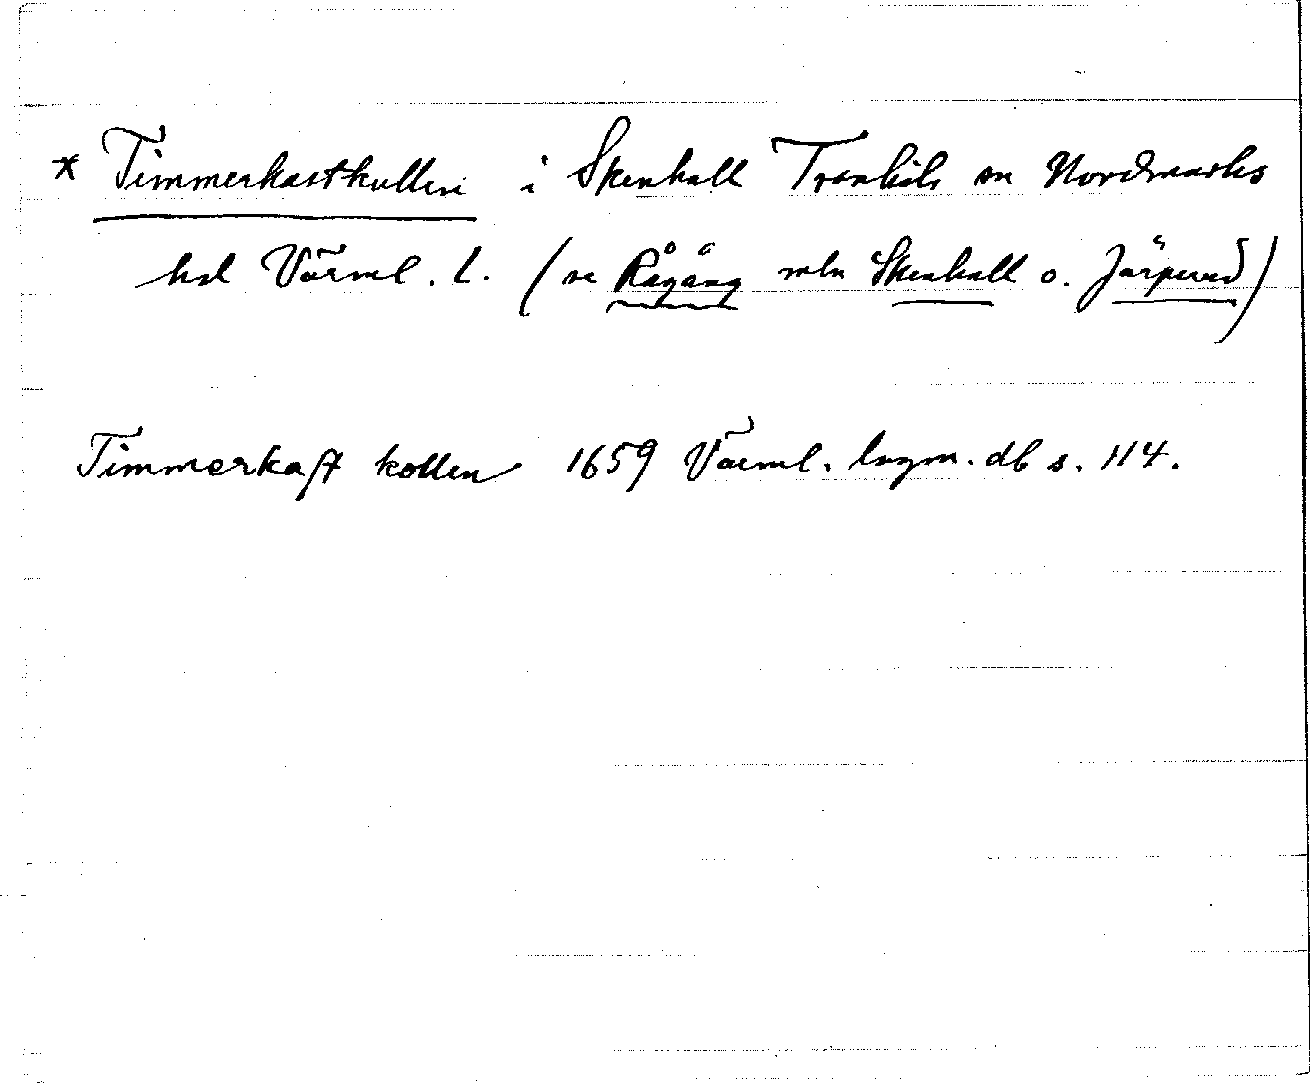 * Timmerkastkullen i Skenhall Trankils sn Nordmarks
hd Värml. l. (se Rågång mln Skenhall o. Järperud)
Timmerkaſt kollen 1659 Värml. lagm. db s. 114.